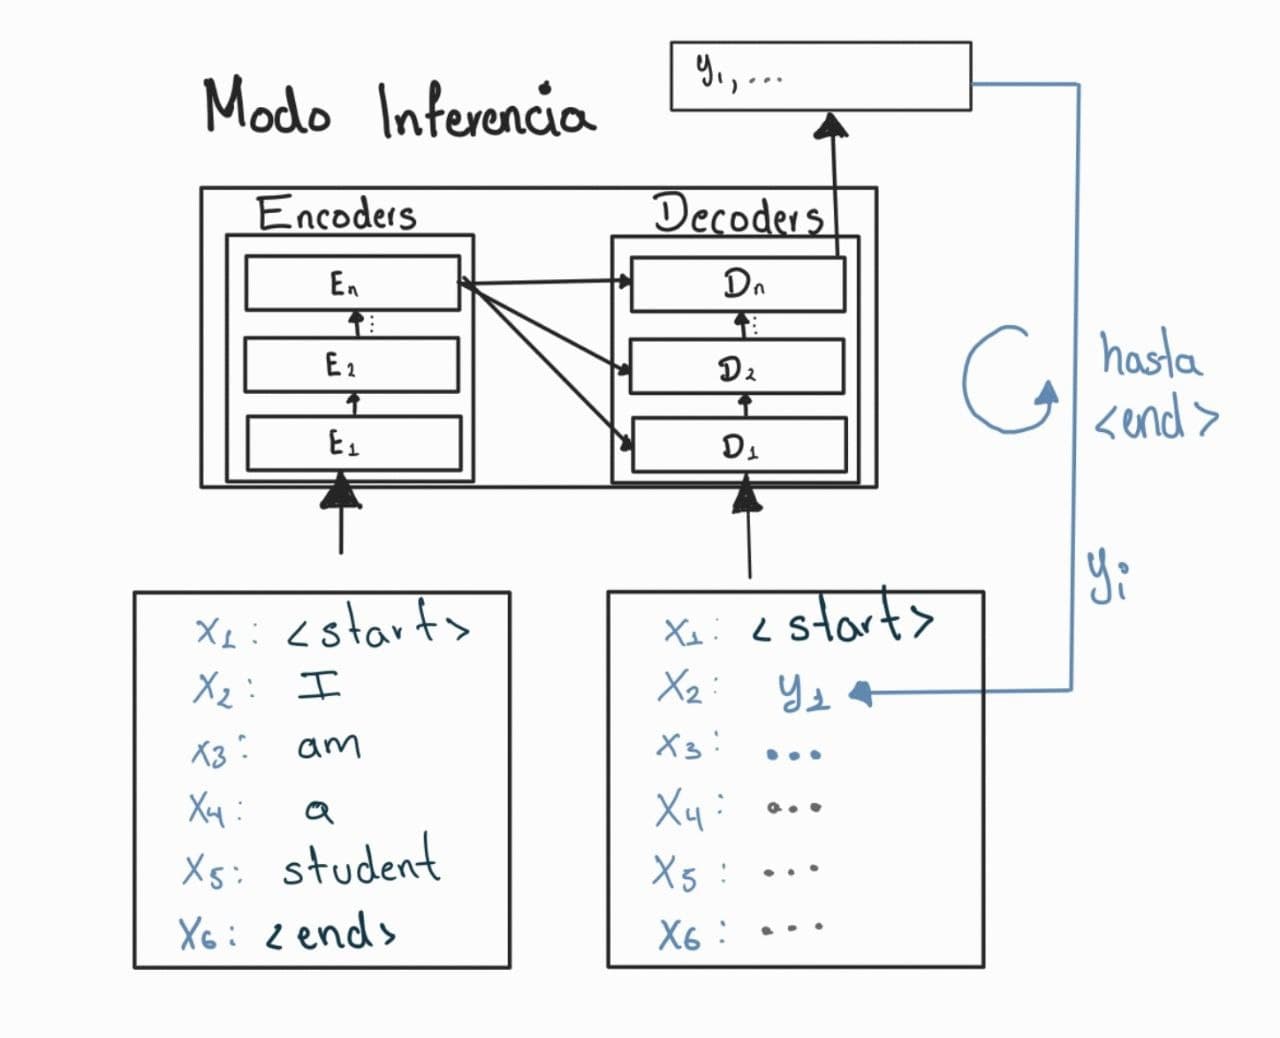 y₁, ...
Modo Inferencia
Encoders
Decoders
Eₙ
Dₙ
E₂
D₂
E₁
D₁
hasta
<end>
yᵢ
x₁: <start>
x₂: I
x₃: am
x₄: a
x₅: student
x₆: <end>
x₁: <start>
x₂: y₁
x₃: ...
x₄: ...
x₅: ...
x₆: ...